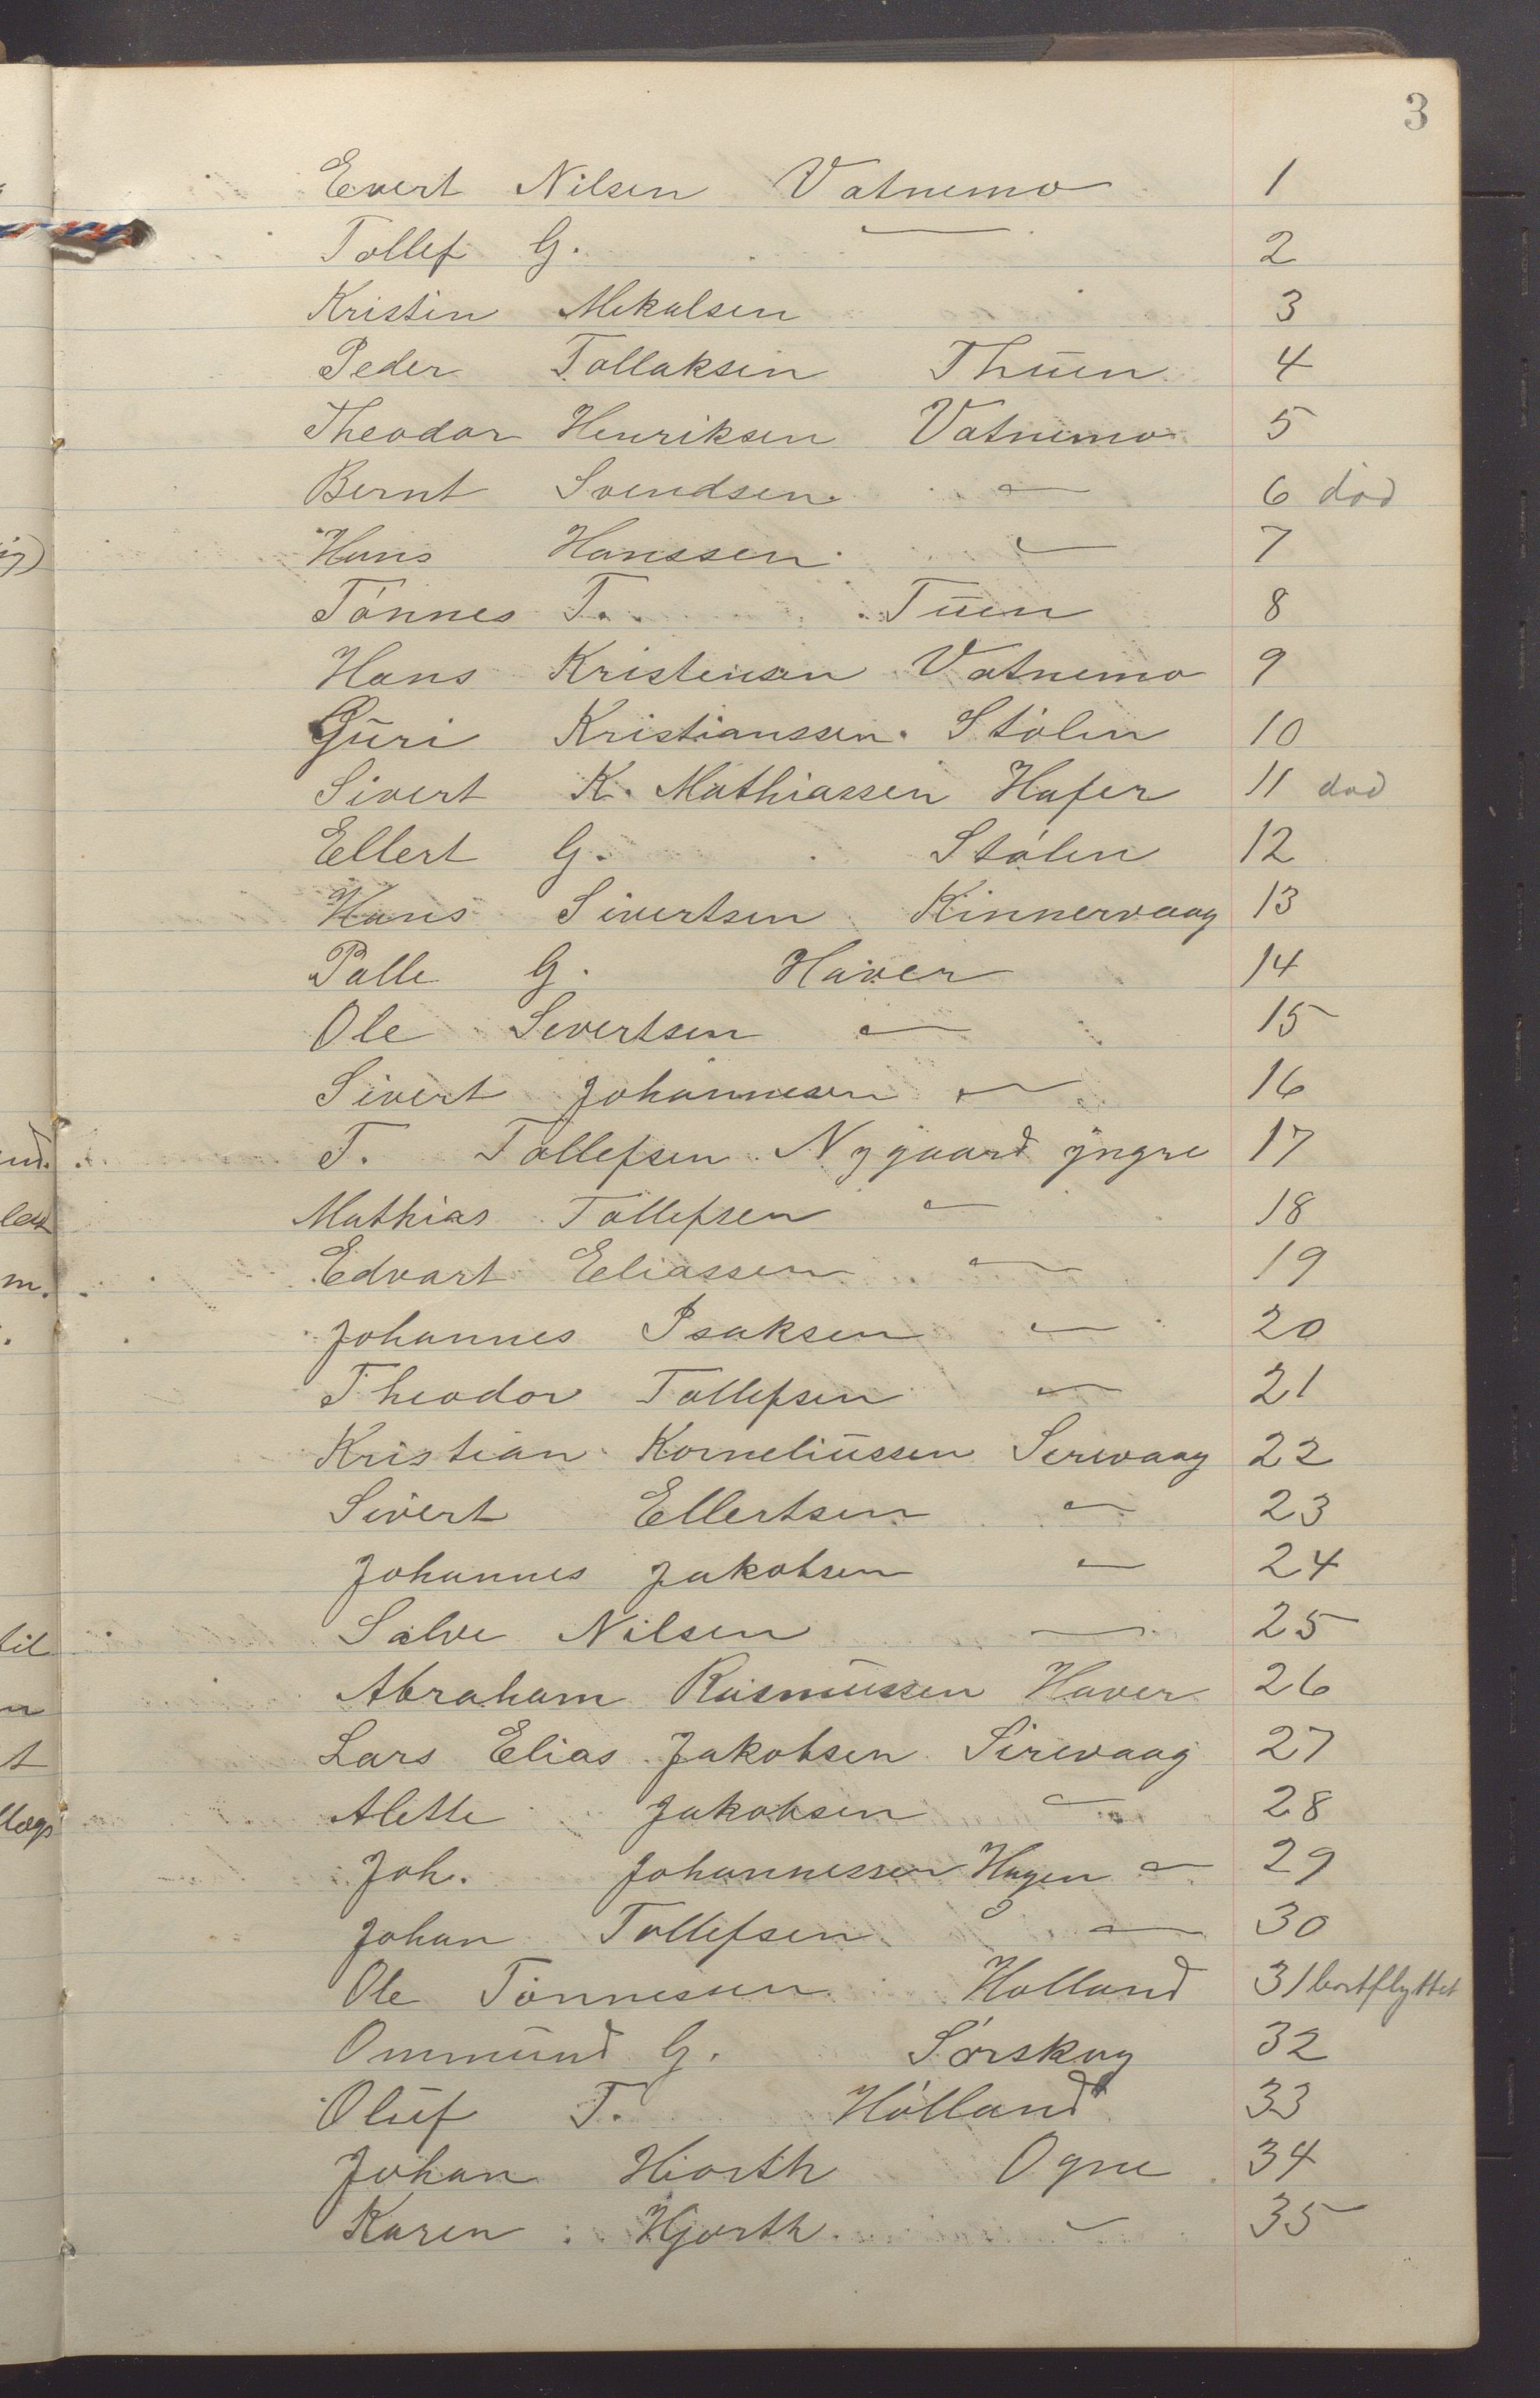 3
Evert Nilsen Vatnemo 1
Tollef G. — 2
Kristin Mikalsen 3
Peder Tollaksen Thuen 4
Theodor Henriksen Vatnemo 5
Bernt Svendsen — 6 död
Hans Hanssen — 7
Tönnes T. Tuen 8
Hans Kristensen Vatnemo 9
Guri Kristianssen Stölen 10
Sivert K. Mathiassen Hafer 11 död
Ellert G. Stölen 12
Hans Sivertsen Kinnervaag 13
Palle G. Haver 14
Ole Sivertsen — 15
Sivert Johannesen — 16
T. Tollefsen Nygaard yngre 17
Mathias Tollefsen — 18
Edvart Eeliassen — 19
Johannes Isaksen — 20
Theodor Tollefsen — 21
Kristian Korneliussen Serevaag 22
Sivert Ellertsen — 23
Johannes Jakobsen — 24
Salve Nilsen — 25
Abraham Rasmussen Haver 26
Lars Elias Jakobsen Sirevaag 27
Alette Jakobsen — 28
Joh. Johannessen Hagen — 29
Johan Tollefsen — 30
Ole Tönnessen Holland 31 bortflyttet
Ommund G. Sörskog 32
Oluf T. Hölland 33
Johan Hiorth Ogne 34
Karen Hjorth — 35